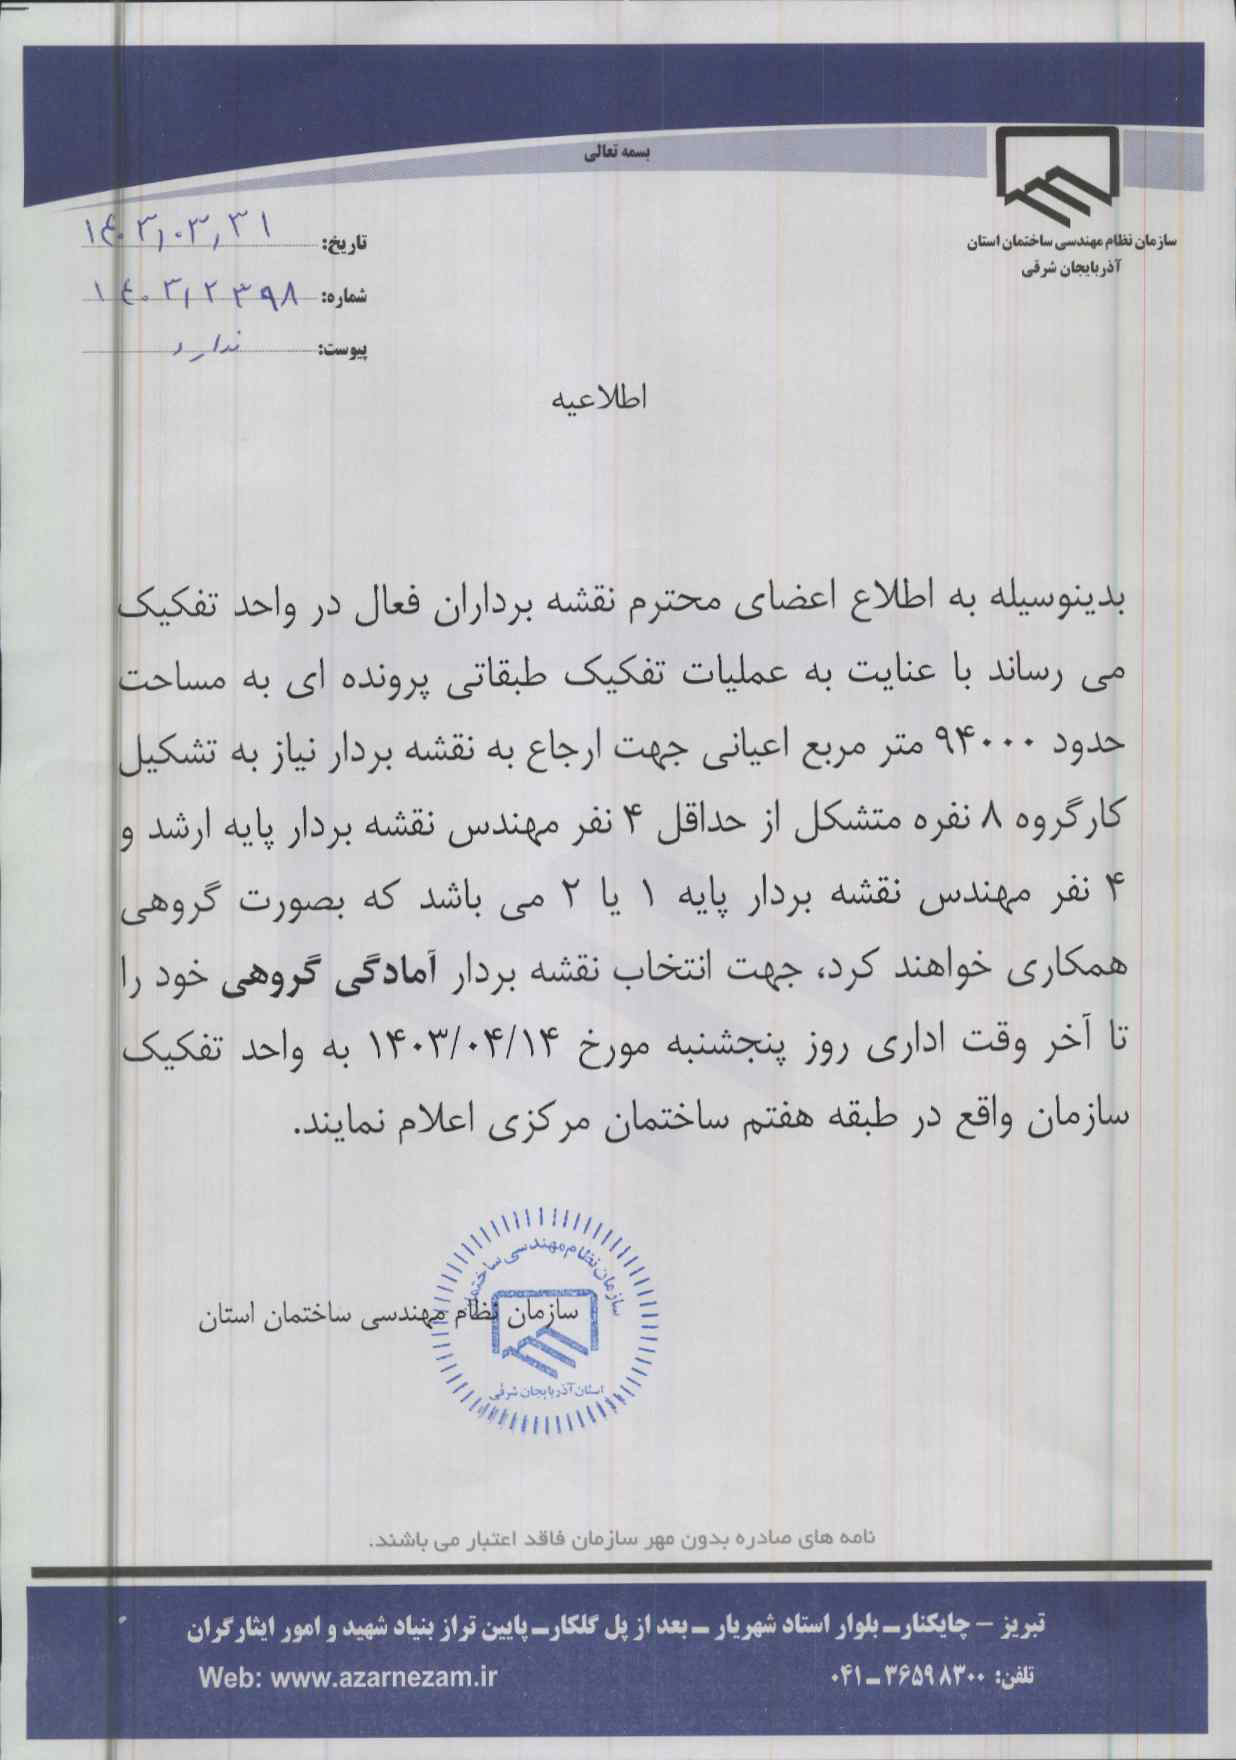 بسمه تعالی
سازمان نظام مهندسی ساختمان استان
آذربایجان شرقی
تاریخ: ۱۴۰۳,۰۳,۳۱
شماره: ۱۴۰۳,۲۳۹۸
پیوست: ندارد
اطلاعیه
بدینوسیله به اطلاع اعضای محترم نقشه برداران فعال در واحد تفکیک
می رساند با عنایت به عملیات تفکیک طبقاتی پرونده ای به مساحت
حدود ۹۴۰۰۰ متر مربع اعیانی جهت ارجاع به نقشه بردار نیاز به تشکیل
کارگروه ۸ نفره متشکل از حداقل ۴ نفر مهندس نقشه بردار پایه ارشد و
۴ نفر مهندس نقشه بردار پایه ۱ یا ۲ می باشد که بصورت گروهی
همکاری خواهند کرد، جهت انتخاب نقشه بردار آمادگی گروهی خود را
تا آخر وقت اداری روز پنجشنبه مورخ ۱۴۰۳/۰۴/۱۴ به واحد تفکیک
سازمان واقع در طبقه هفتم ساختمان مرکزی اعلام نمایند.
سازمان نظام مهندسی ساختمان
سازمان نظام مهندسی ساختمان استان
استان آذربایجان شرقی
نامه های صادره بدون مهر سازمان فاقد اعتبار می باشند.
تبریز – چایکنار– بلوار استاد شهریار – بعد از پل گلکار– پایین تراز بنیاد شهید و امور ایثارگران
تلفن: ۳۶۵۹۸۳۰۰–۰۴۱
Web: www.azarnezam.ir